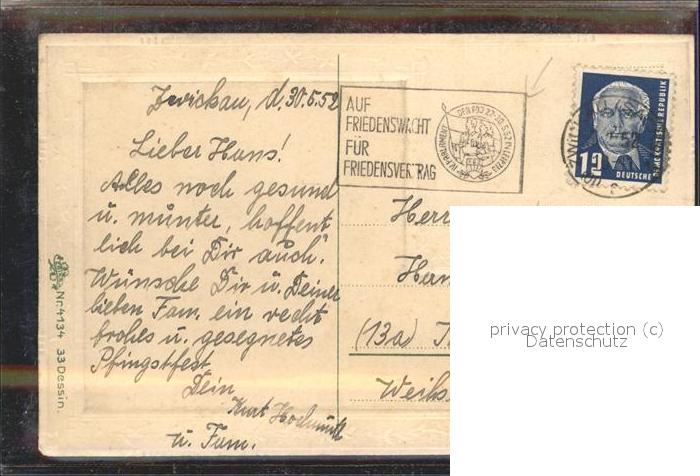 Zwickau, d. 30.5.52
Lieber Hans!
Alles noch gesund
u. munter, hoffent
lich bei Dir auch.
Wünsche Dir u. Deiner
lieben Fam. ein recht
frohes u. gesegnetes
Pfingstfest
Dein
Kurt
u. Fam.
Nr. 4134 33 Dessin.
AUF
FRIEDENSWACHT
FÜR
FRIEDENSVERTRAG
IV. PARLAMENT
12
DEUTSCHE
DEMOKRATISCHE REPUBLIK
Herr
(13a)
privacy protection (c)
Datenschutz